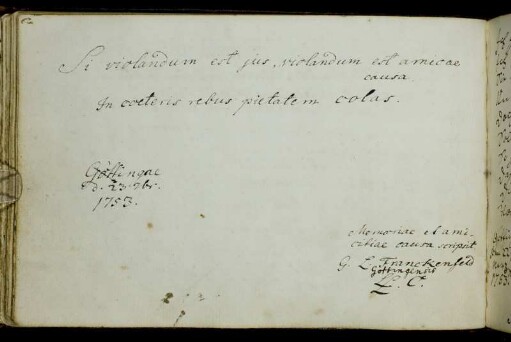 Si violandum est jus, violandum est amicae
causa.
In coeteris rebus pietatem colas.
Göttingae
d. 23. 7br.
1753.
Memoriae et ami-
citiae causa scripsit
G. L. Franckenfeld
Göttingensis
L. C.